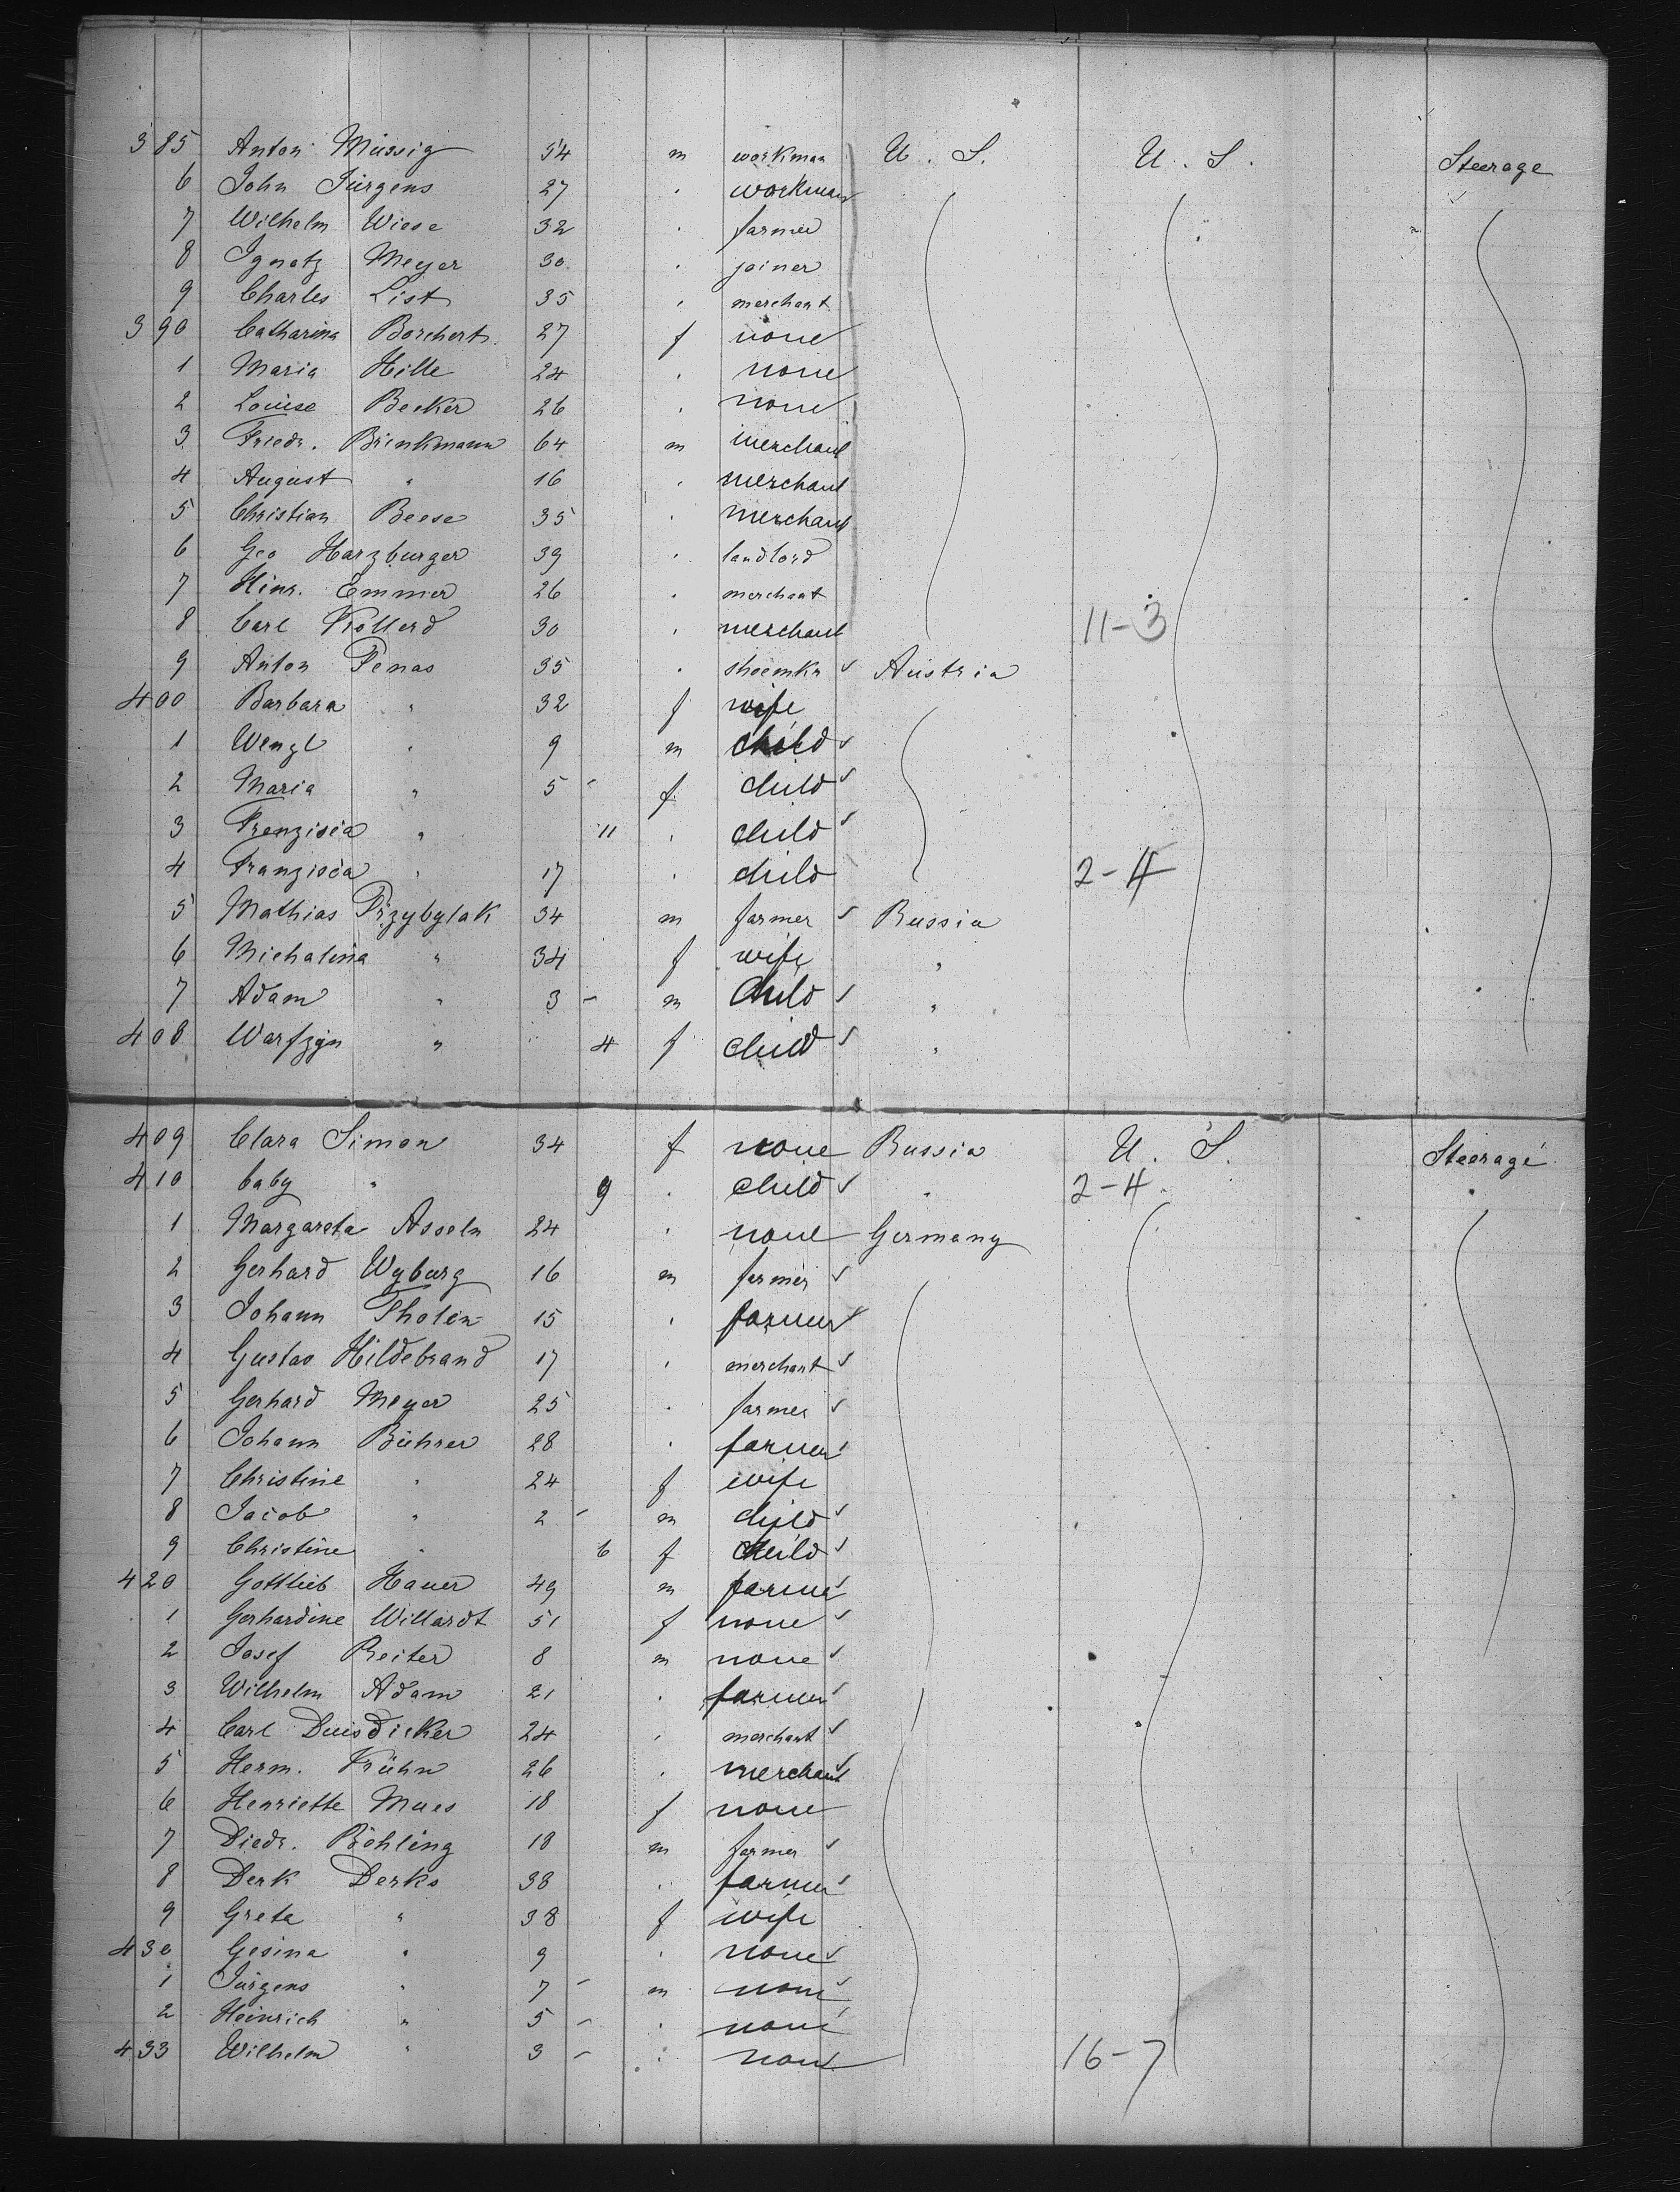 385 Anton Müssig 54 m workman U. S. U. S. Steerage
6 John Jürgens 27 " workman
7 Wilhelm Wiese 32 " farmer
8 Ignatz Meyer 30 " joiner
9 Charles List 35 " merchant
390 Catharina Borchert 27 f none
1 Maria Hille 24 " none
2 Louise Becker 26 " none
3 Friedr. Brinkmann 64 m merchant
4 August " 16 " merchant
5 Christian Beese 35 " merchant
6 Geo Harzburger 39 " landlord
7 Hinr. Emmer 26 " merchant
8 Carl Kollerd 30 " merchant 11-3
9 Anton Penas 35 " shoemkr ✓ Austria
400 Barbara " 32 f wife
1 Wenzl " 9 m child ✓
2 Maria " 5 - f child ✓
3 Franzisca " 11 " child ✓
4 Franzisca " 17 " child 2-4
5 Mathias Przybylak 34 m farmer ✓ Russia
6 Michalina " 34 f wife "
7 Adam " 3 - m child ✓ "
408 Warfzyn " 4 f child ✓ "
409 Clara Simon 34 f none Russia U. S. Steerage
410 baby " 9 " child ✓ " 2-4
1 Margareta Asseln 24 " none Germany
2 Gerhard Wyburg 16 m farmer ✓
3 Johann Tholen 15 " farmer ✓
4 Gustav Hildebrand 17 " merchant ✓
5 Gerhard Meyer 25 " farmer ✓
6 Johann Bührer 28 " farmer ✓
7 Christine " 24 f wife
8 Jacob " 2 - m child ✓
9 Christine " 6 f child ✓
420 Gottlieb Hauer 49 m farmer ✓
1 Gerhardine Willardt 51 f none ✓
2 Josef Reiter 8 m none ✓
3 Wilhelm Adam 21 " farmer ✓
4 Carl Duisdieker 24 " merchant ✓
5 Herm. Krühn 26 " merchant ✓
6 Henriette Mues 18 f none
7 Diedr. Böhling 18 m farmer ✓
8 Derk Derks 38 " farmer ✓
9 Greta " 38 f wife
430 Gesina " 9 " none ✓
1 Jürgens " 7 - m none ✓
2 Heinrich " 5 - " none ✓
433 Wilhelm " 3 - " none 16-7